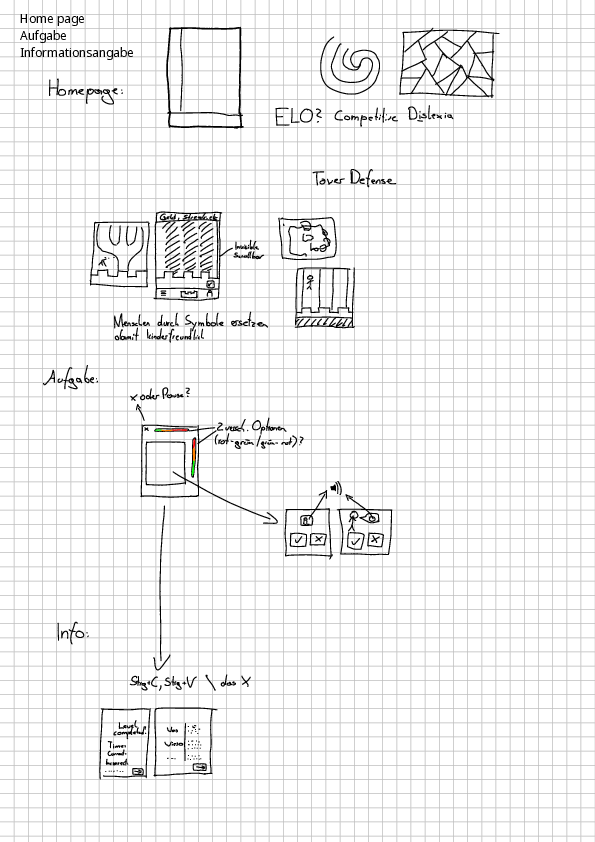 Home page
Aufgabe
Informationsangabe
Homepage:
ELO? Competitive Dislexia
Tover Defense
Gold,
Invisible
Scrollbar
Menschen durch Symbole ersetzen
damit kinderfreundlich
Aufgabe:
x oder Pause?
x
2 versch. Optionen
(rot-grün/grün-rot)?
Info:
Strg+C, Strg+V \ das X
Level
completed!
Time:
Correct:
Incorrect:
Was
Wieso